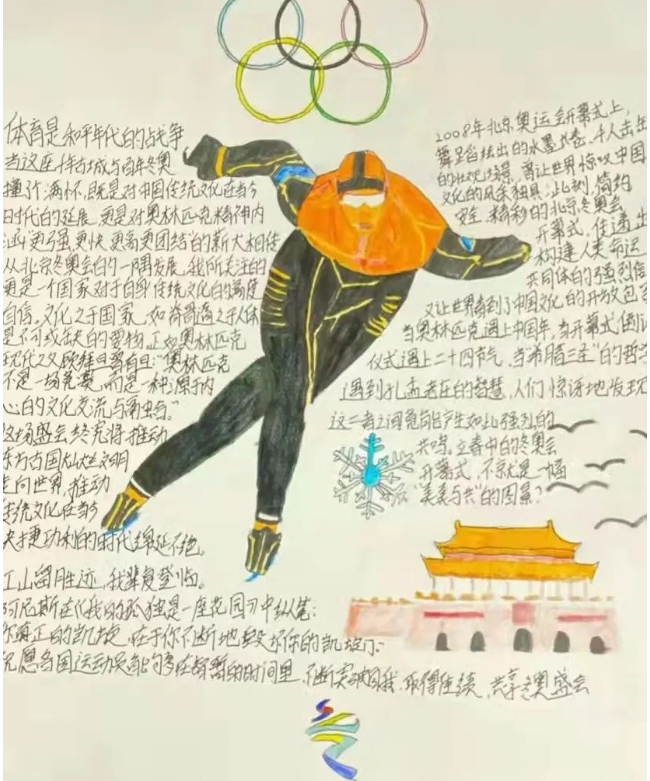 体育是和平年代的战争
当这座千年古城与百年冬奥
撞计满怀,既是对中国传统文化在当今
时代的延展,更是对奥林匹克精神内
涵"更强更快更高更团结"的薪火相传
从北京冬奥会的一隅发展,我所关注的
更是一个国家对于自身传统文化的高度
自信。文化之于国家,如脊骨之于人体
是不可或缺的
正如奥林匹克
现代之父顾拜旦曾有曰:"奥林匹克
不是一场竞赛,而是一种源于内
心的文化交流与融合。"
这场盛会终究将推动
东方古国灿烂文明
走向世界,推动
传统文化在当今
的时代绵延不绝。
江山留胜迹,我辈复登临。
阿尼斯在《我的孤独是一座花园》中纵笔:
你真正的凯旋,在于你不断地毁坏你的凯旋门。
祝愿各国运动员能够在
的时间里,不断突破自我,取得佳绩,共享冬奥盛会
2008年北京奥运会开幕式上,
舞蹈绘出的水墨长卷,千人击缶
的壮观场景,曾让世界惊叹中国
文化的风采独具;此刻,简约
安全、精彩的北京冬奥会
开幕式,传递出
构建人类命运
共同体的强烈信
又让世界看到了中国文化的开放包容
当奥林匹克遇上中国年,当开幕式倒计
仪式遇上二十四节气,当
的哲学
遇到孔孟老庄的智慧,人们惊讶地发现
这二者之间竟能产生如此强烈的
共鸣。立春中的冬奥会
开幕式,不就是一幅
"美美与共"的图景?